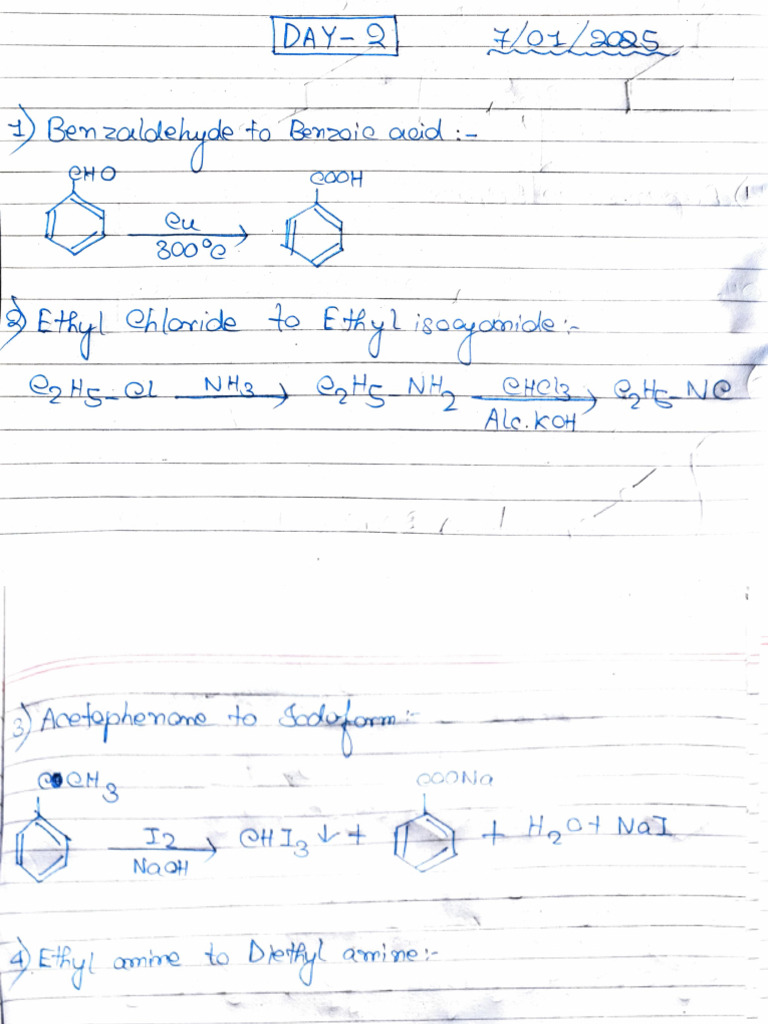 DAY-2 7/01/2025
1) Benzaldehyde to Benzoic acid :-
CHO COOH
Cu
300°C
2) Ethyl Chloride to Ethyl isocyanide:-
C2H5-Cl NH3 → C2H5-NH2 CHCl3 → C2H5-NC
Alc.KOH
3) Acetophenone to Iodoform:-
COCH3 COONa
I2 → CHI3 ↓ + + H2O + NaI
NaOH
4) Ethyl amine to Diethyl amine:-